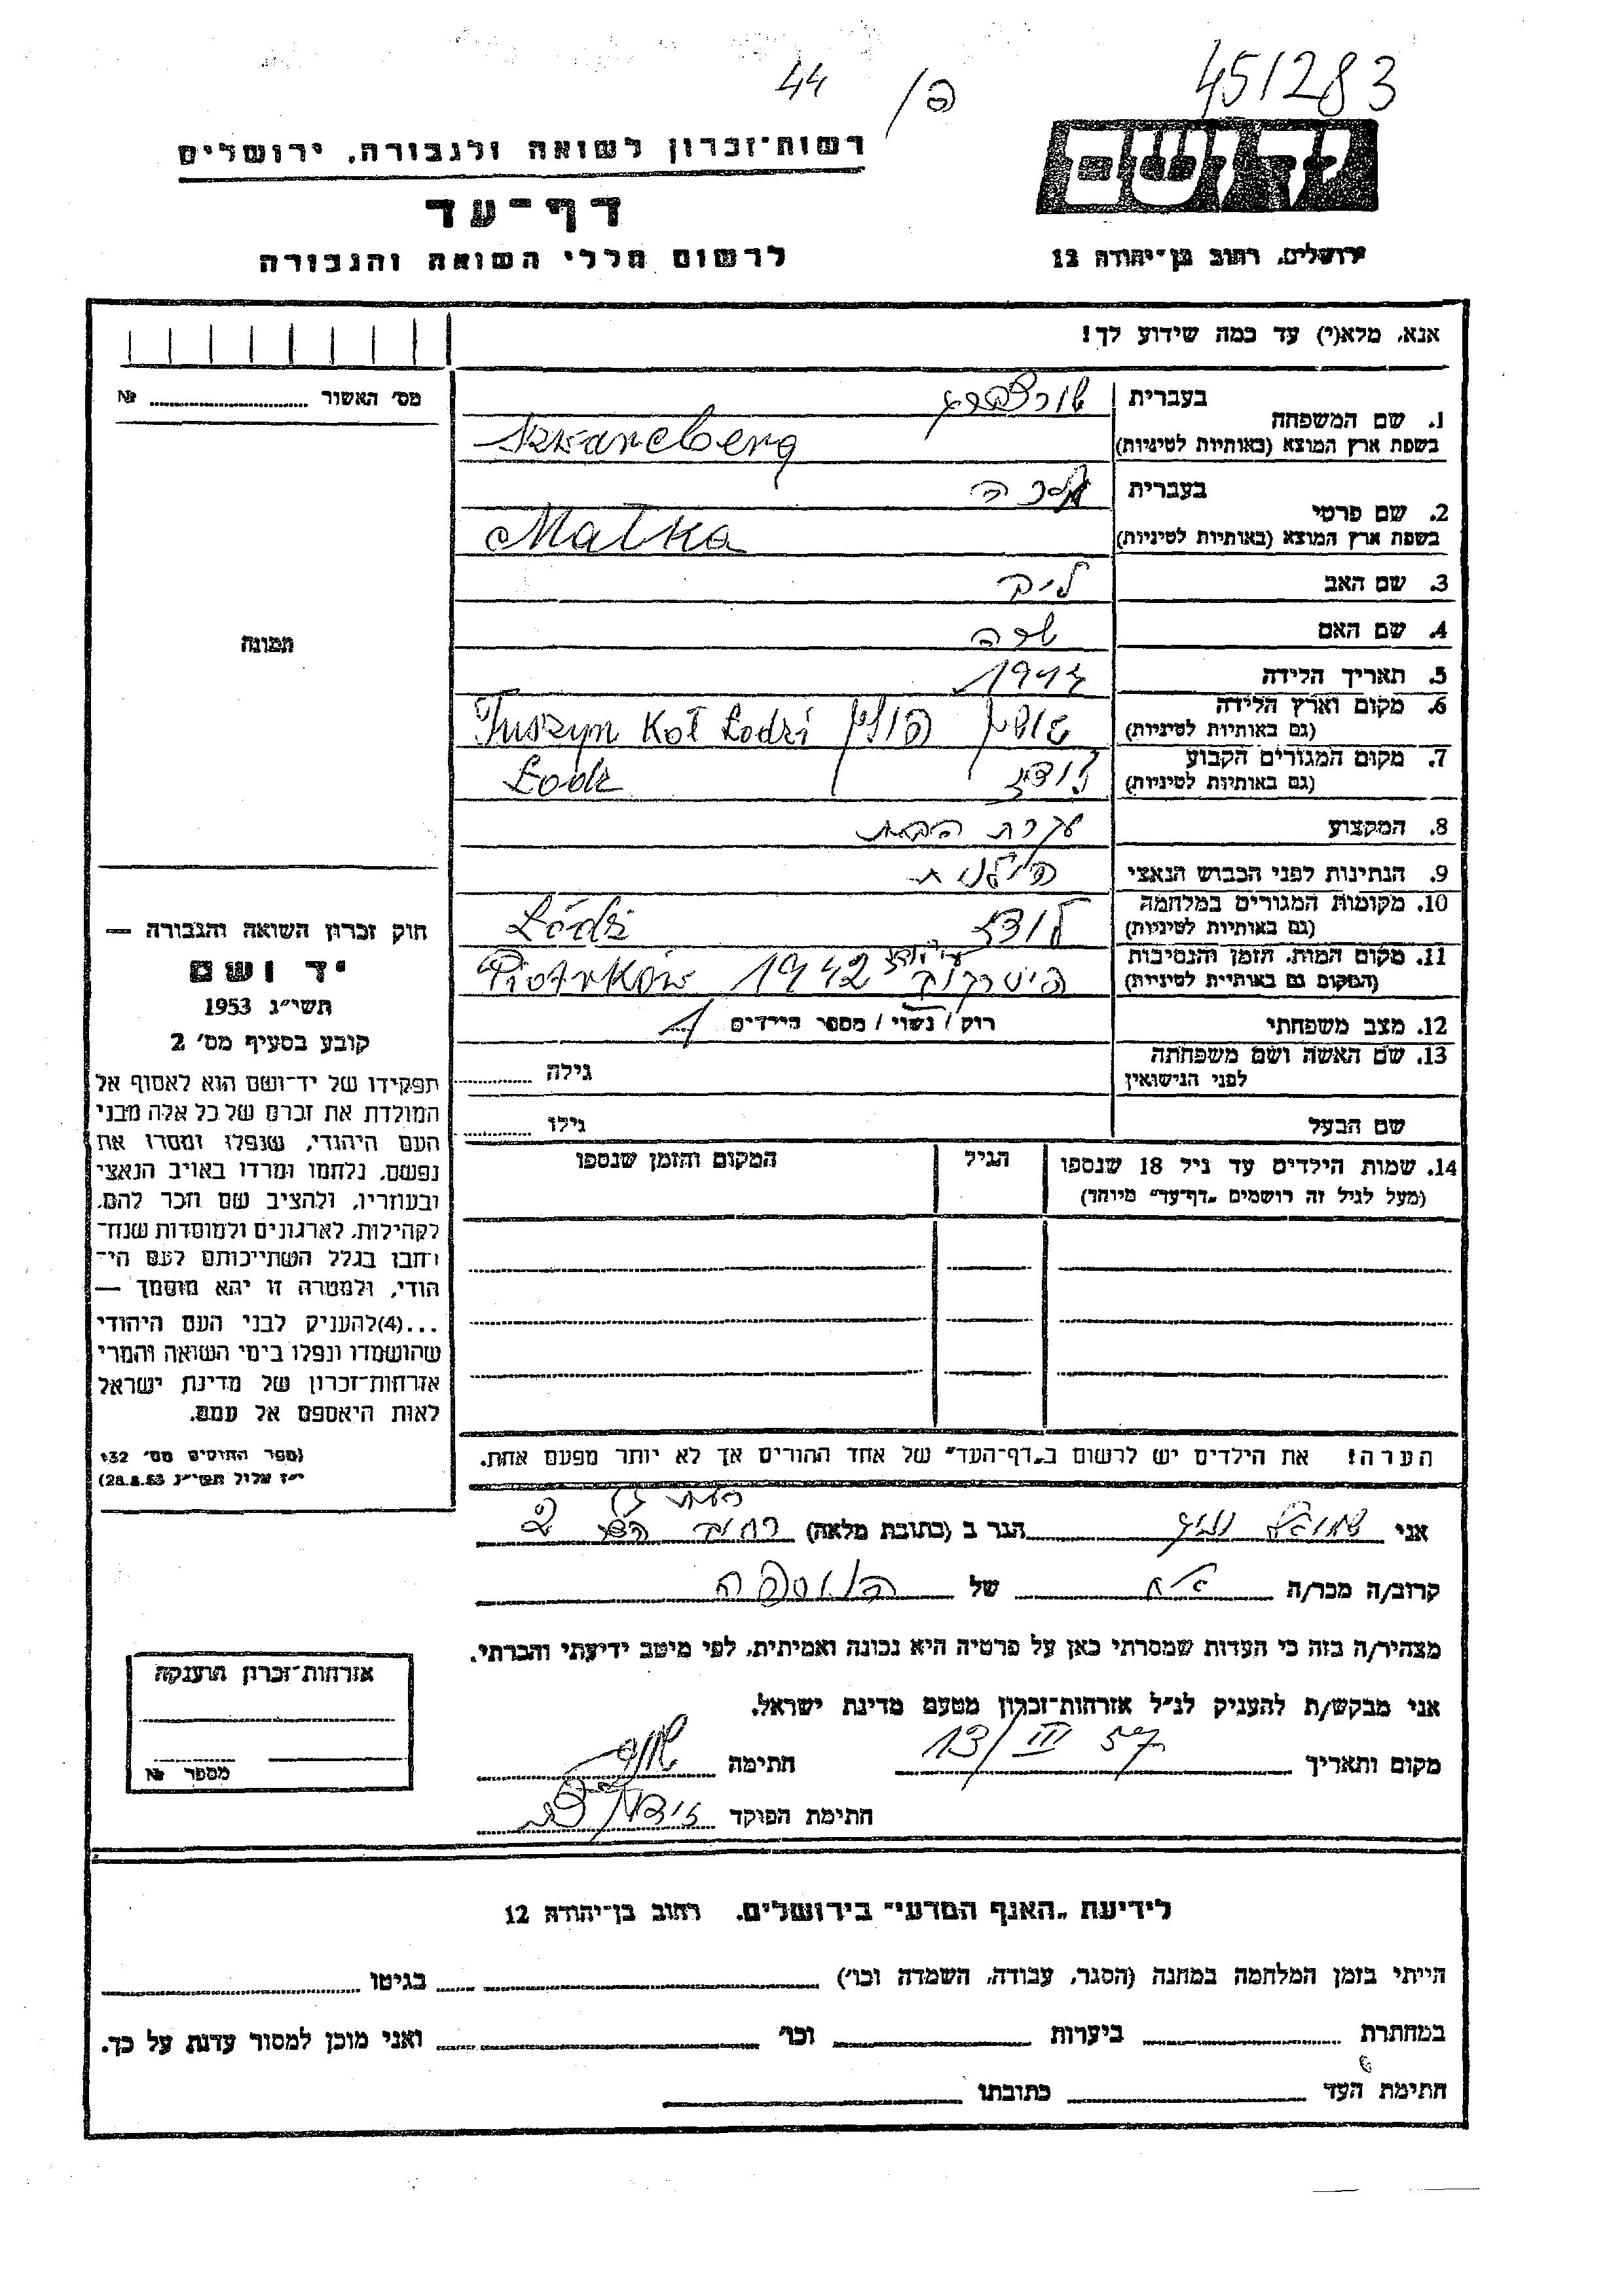 451283
44
יד ושם
רשות־זכרון לשואה ולגבורה, ירושלים
דף־עד
לרשום חללי השואה והגבורה
ירושלים, רחוב בן־יהודה 12
אנא, מלא(י) עד כמה שידוע לך!
מס׳ האשור №
1. שם המשפחה
בעברית שורצברג
בשפת ארץ המוצא (באותיות לטיניות) Szwarcberg
2. שם פרטי
בעברית מלכה
בשפת ארץ המוצא (באותיות לטיניות) Małka
3. שם האב
4. שם האם שרה
תמונה
5. תאריך הלידה
6. מקום וארץ הלידה
(גם באותיות לטיניות) טושין פולין Tuszyn Koł Łodzi
7. מקום המגורים הקבוע
(גם באותיות לטיניות) לודז Łodz
8. המקצוע עקרת הבית
9. הנתינות לפני הכבוש הנאצי פולנית
10. מקומות המגורים במלחמה
(גם באותיות לטיניות) לודז Łódź
11. מקום המות, הזמן והנסיבות
(המקום גם באותיות לטיניות) פיטרקוב 1942 Piotrków
12. מצב משפחתי רוק / נשוי / מספר הילדים 1
13. שם האשה ושם משפחתה
לפני הנישואין גילה
שם הבעל גילו
14. שמות הילדים עד גיל 18 שנספו
(מעל לגיל זה רושמים „דף־עד״ מיוחד)
הגיל
המקום והזמן שנספו
חוק זכרון השואה והגבורה —
יד ושם
תשי״ג 1953
קובע בסעיף מס׳ 2
תפקידו של יד־ושם הוא לאסוף אל
המולדת את זכרם של כל אלה מבני
העם היהודי, שנפלו ומסרו את
נפשם, נלחמו ומרדו באויב הנאצי
ובעוזריו, ולהציב שם וזכר להם,
לקהילות, לארגונים ולמוסדות שנח־
רבו בגלל השתייכותם לעם הי־
הודי, ולמטרה זו יהא מוסמך —
...(4)להעניק לבני העם היהודי
שהושמדו ונפלו בימי השואה והמרי
אזרחות־זכרון של מדינת ישראל
לאות היאספם אל עמם.
(ספר החוקים מס׳ 132
י״ז אלול תשי״ג 28.8.53)
הערה! את הילדים יש לרשום ב„דף־העד״ של אחד ההורים אך לא יותר מפעם אחת.
רמת גן
אני הגר ב (כתובת מלאה) רחוב 2
קרוב/ה מכר/ה של הנוספה
מצהיר/ה בזה כי העדות שמסרתי כאן על פרטיה היא נכונה ואמיתית, לפי מיטב ידיעתי והכרתי.
אני מבקש/ת להעניק לנ״ל אזרחות־זכרון מטעם מדינת ישראל.
מקום ותאריך 13/III 57 חתימה
חתימת הפוקד
אזרחות־זכרון הוענקה
מספר №
לידיעת „האגף המדעי״ בירושלים, רחוב בן־יהודה 12
הייתי בזמן המלחמה במחנה (הסגר, עבודה, השמדה וכו׳) בגיטו
במחתרת ביערות וכו׳ ואני מוכן למסור עדות על כך.
חתימת העד כתובתו